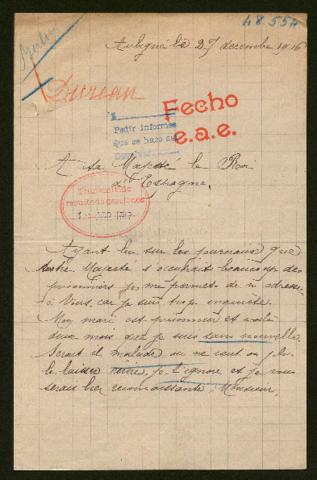 48554
Berlin
Aubigné le 27 decembre 1916
Dureau
Fecho
e.a.e.
Pedir informes
que se hace su
A sa Majesté le Roi
d'Espagne,
Ayant lu sur les journaux que
Votre Majesté s'occupait beaucoup des
prisonniers je me permets de m'adresser
à Vous, car je suis trop inquiète.
Mon mari est prisonnier et voilà
deux mois que je suis sans nouvelle
Serait il malade ou ne veut on plus
le laisser écrire, je l'ignore et je vous
serais bien reconnaissante, Monsieur,